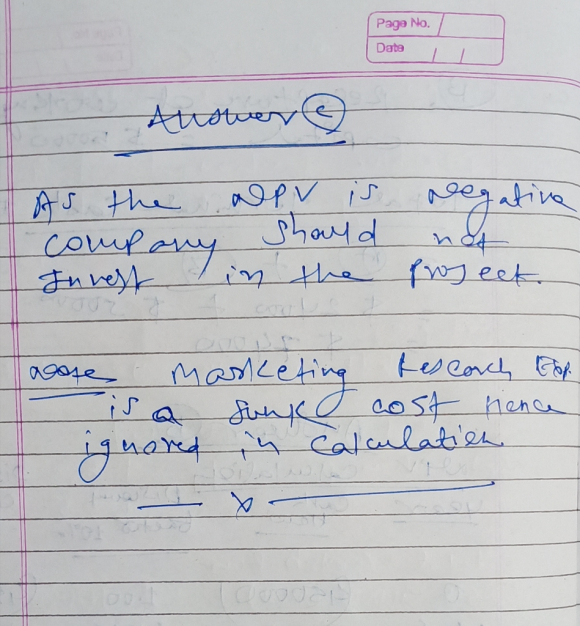 Page No.
Date / /
Answer (c)
As the NPV is negative
company should not
Invest in the project.
Note Marketing research Exp.
is a sunk cost hence
ignored in calculation
x